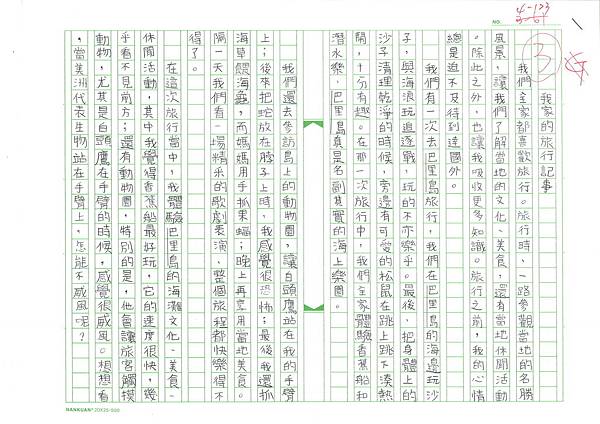 NO.
4-123
3
我家的旅行記事
我們全家都喜歡旅行。旅行時、一路參觀當地的名勝
風景，讓我們了解當地的文化、美食，還有當地休閒活動
。除此之外，也讓我吸收更多知識。旅行之前，我的心情
總是迫不及待到達國外。
我們有一次去巴里島旅行，我們在巴里島的海邊玩沙
子，與海浪玩追逐戰，玩的不亦樂乎。最後，把身體上的
沙子清理乾淨的時候，旁邊有可愛的松鼠在跳上跳下湊熱
鬧，十分有趣。在那一次旅行中，我們全家體驗香蕉船和
潛水樂，巴里島真是名副其實的海上樂園。
我們還去參訪島上的動物園，讓白頭鷹站在我的手臂
上；後來把蛇放在脖子上時，我感覺很恐怖；最後我還抓
海草餵海龜，而媽媽用手抓果蝠；晚上再享用當地美食。
隔一天我們看一場精采的歌劇表演、整個旅程都快樂得不
得了。
在這次旅行當中，我體驗巴里島的海灘文化、美食、
休閒活動，其中我覺得香蕉船最好玩，它的速度很快，幾
乎看不見前方；還有動物園，特別的是，他會讓旅客觸摸
動物，尤其是白頭鷹在手臂的時候，感覺很威風。想想看
，當美洲代表生物站在手臂上，怎能不威風呢？
NANKUAN 20X25=500